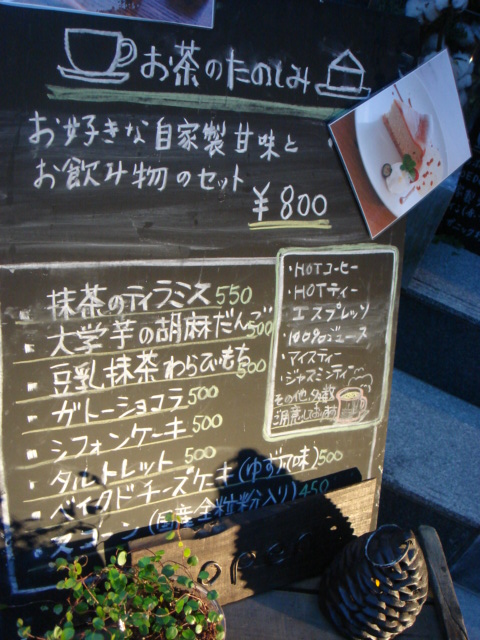 お茶のたのしみ
お好きな自家製甘味と
お飲み物のセット
¥800
・抹茶のティラミス 550
・大学芋の胡麻だんご 500
・豆乳抹茶わらびもち 500
・ガトーショコラ 500
・シフォンケーキ 500
・タルトレット 500
・ベイクドチーズケーキ(ゆず風味) 500
・スコーン(国産全粒粉入り) 450
・HOTコーヒー
・HOTティー
・エスプレッソ
・100%ジュース
・アイスティー
・ジャスミンティー
その他多数
ご用意しております
open